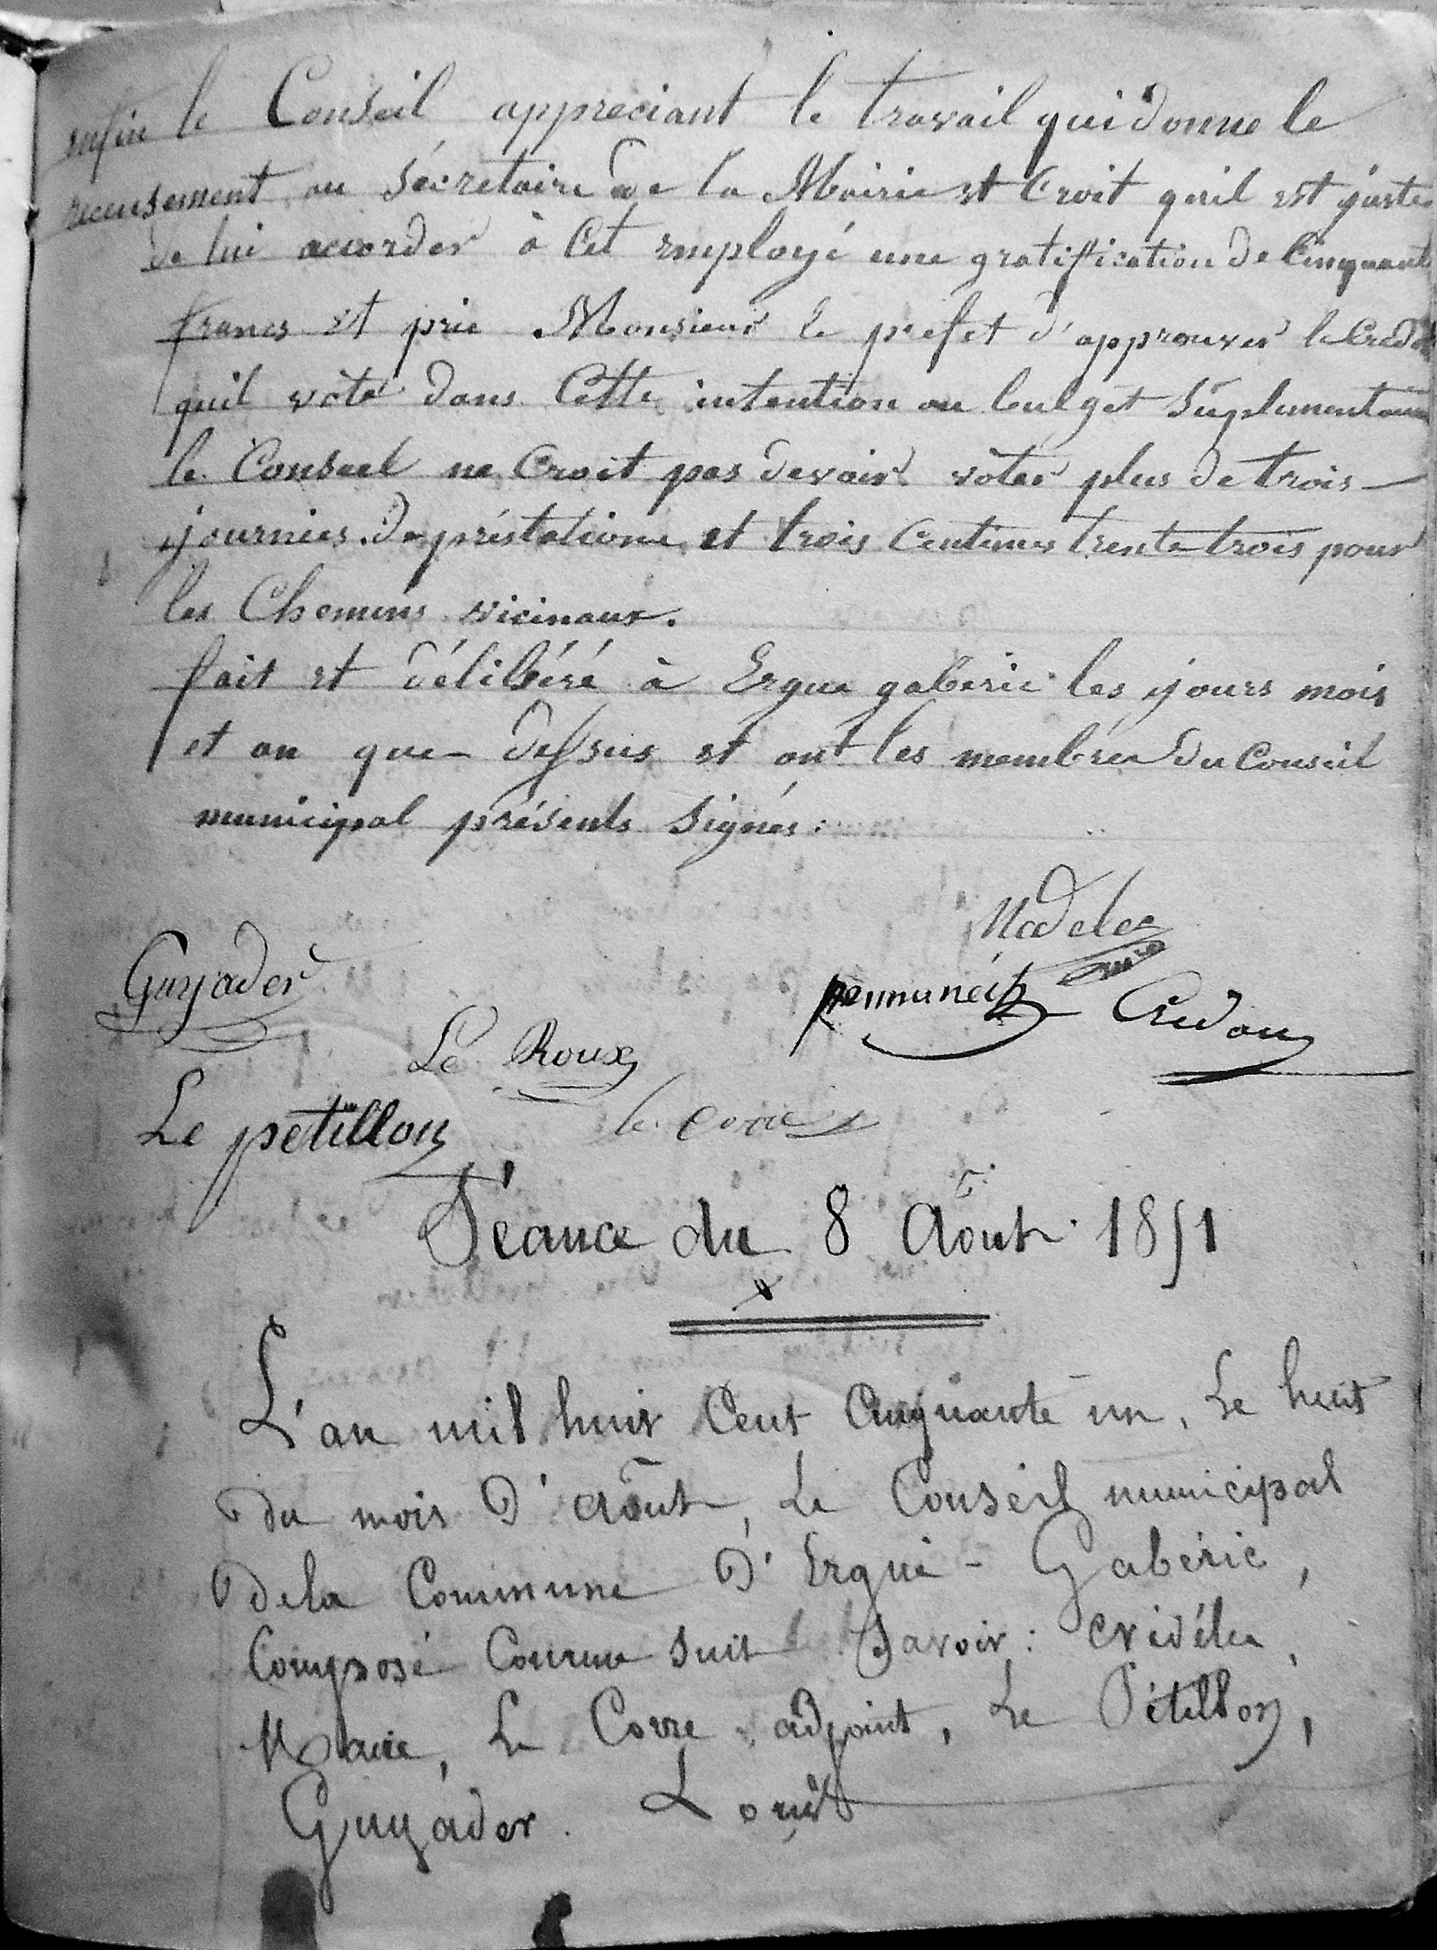 enfin le Conseil appreciant le travail qui donne le
recensement au sécretaire de la Mairie et Croit qu'il est juste
de lui accorder à Cet employé une gratification de Cinquante
francs et prie Monsieur le prefet d'approuver le Credit
qu'il vôte dans Cette intention au budget Suplementaire
le Conseil ne Croit pas devoir vôter plus de trois
journées de préstations et trois Centimes trente trois pour
les Chemins vicinaux.
fait et délibéré à Ergue gabéric les jours mois
et an que dessus et ont les membres du Conseil
municipal présents signés:
Nadelec
Guyader
pennanéch Credou
Le Roux
Le petillon le corre
Séance du 8 Août 1851
L'an mil huit Cent Cinquante un, Le huit
du mois D'août, Le Conseil municipal
De la Commune D'Ergué-Gabéric,
Composé Comme suit Savoir:
Maire, Le Corre adjoint, Le Pétillon,
Guyader.